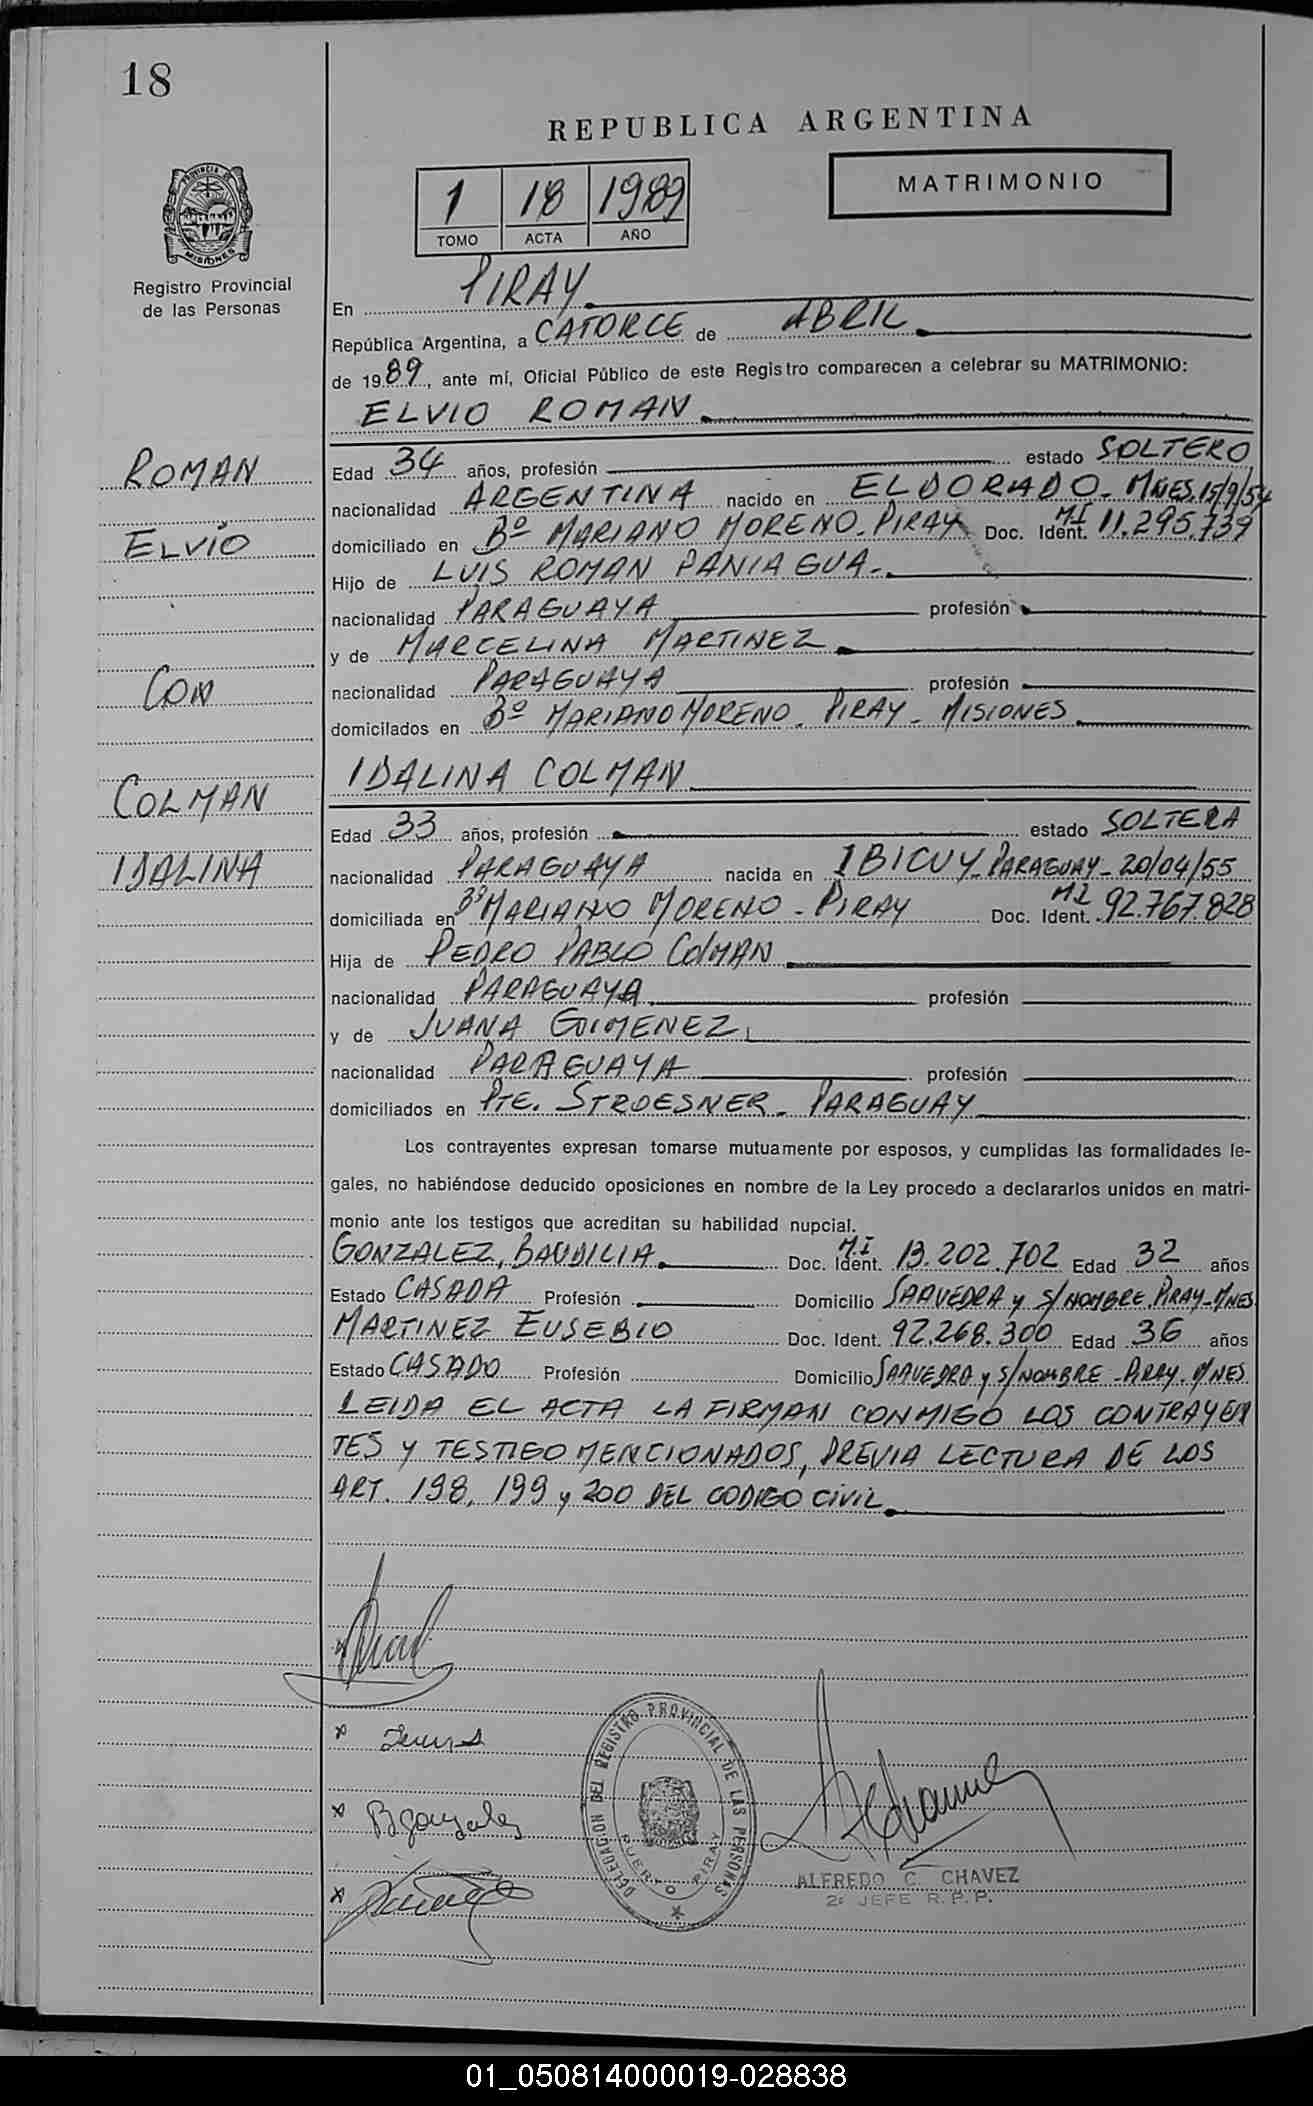 18
REPUBLICA ARGENTINA
1 18 1989
TOMO ACTA AÑO
MATRIMONIO
PROVINCIA DE MISIONES
Registro Provincial
de las Personas
En PIRAY
República Argentina, a CATORCE de ABRIL
de 1989, ante mí, Oficial Público de este Registro comparecen a celebrar su MATRIMONIO:
ELVIO ROMAN
ROMAN
ELVIO
CON
COLMAN
IDALINA
Edad 34 años, profesión estado SOLTERO
nacionalidad ARGENTINA nacido en ELDORADO - MNES. 15/9/54
domiciliado en Bº MARIANO MORENO - PIRAY Doc. Ident. MI 11.295.739
Hijo de LUIS ROMAN PANIAGUA -
nacionalidad PARAGUAYA profesión
y de MARCELINA MARTINEZ
nacionalidad PARAGUAYA profesión
domiciliados en Bº MARIANO MORENO - PIRAY - MISIONES
IDALINA COLMAN
Edad 33 años, profesión estado SOLTERA
nacionalidad PARAGUAYA nacida en IBICUY - PARAGUAY - 20/04/55
domiciliada en Bº MARIANO MORENO - PIRAY Doc. Ident. MI 92.767.828
Hija de PEDRO PABLO COLMAN
nacionalidad PARAGUAYA profesión
y de JUANA GIMENEZ
nacionalidad PARAGUAYA profesión
domiciliados en PTE. STROESNER - PARAGUAY
Los contrayentes expresan tomarse mutuamente por esposos, y cumplidas las formalidades le-
gales, no habiéndose deducido oposiciones en nombre de la Ley procedo a declararlos unidos en matri-
monio ante los testigos que acreditan su habilidad nupcial.
GONZALEZ, BAUDILIA Doc. Ident. M.I 13.202.702 Edad 32 años
Estado CASADA Profesión Domicilio SAAVEDRA y S/NOMBRE. PIRAY - MNES
MARTINEZ EUSEBIO Doc. Ident. 92.268.300 Edad 36 años
Estado CASADO Profesión Domicilio SAAVEDRA y S/NOMBRE - PIRAY - MNES
LEIDA EL ACTA LA FIRMAN CONMIGO LOS CONTRAYEN
TES Y TESTIGO MENCIONADOS, PREVIA LECTURA DE LOS
ART. 198, 199 y 200 DEL CODIGO CIVIL
DELEGACION DEL REGISTRO PROVINCIAL DE LAS PERSONAS
PUERTO PIRAY
x
x B gonzales
x
ALFREDO C. CHAVEZ
2º JEFE R. P. P.
01_050814000019-028838